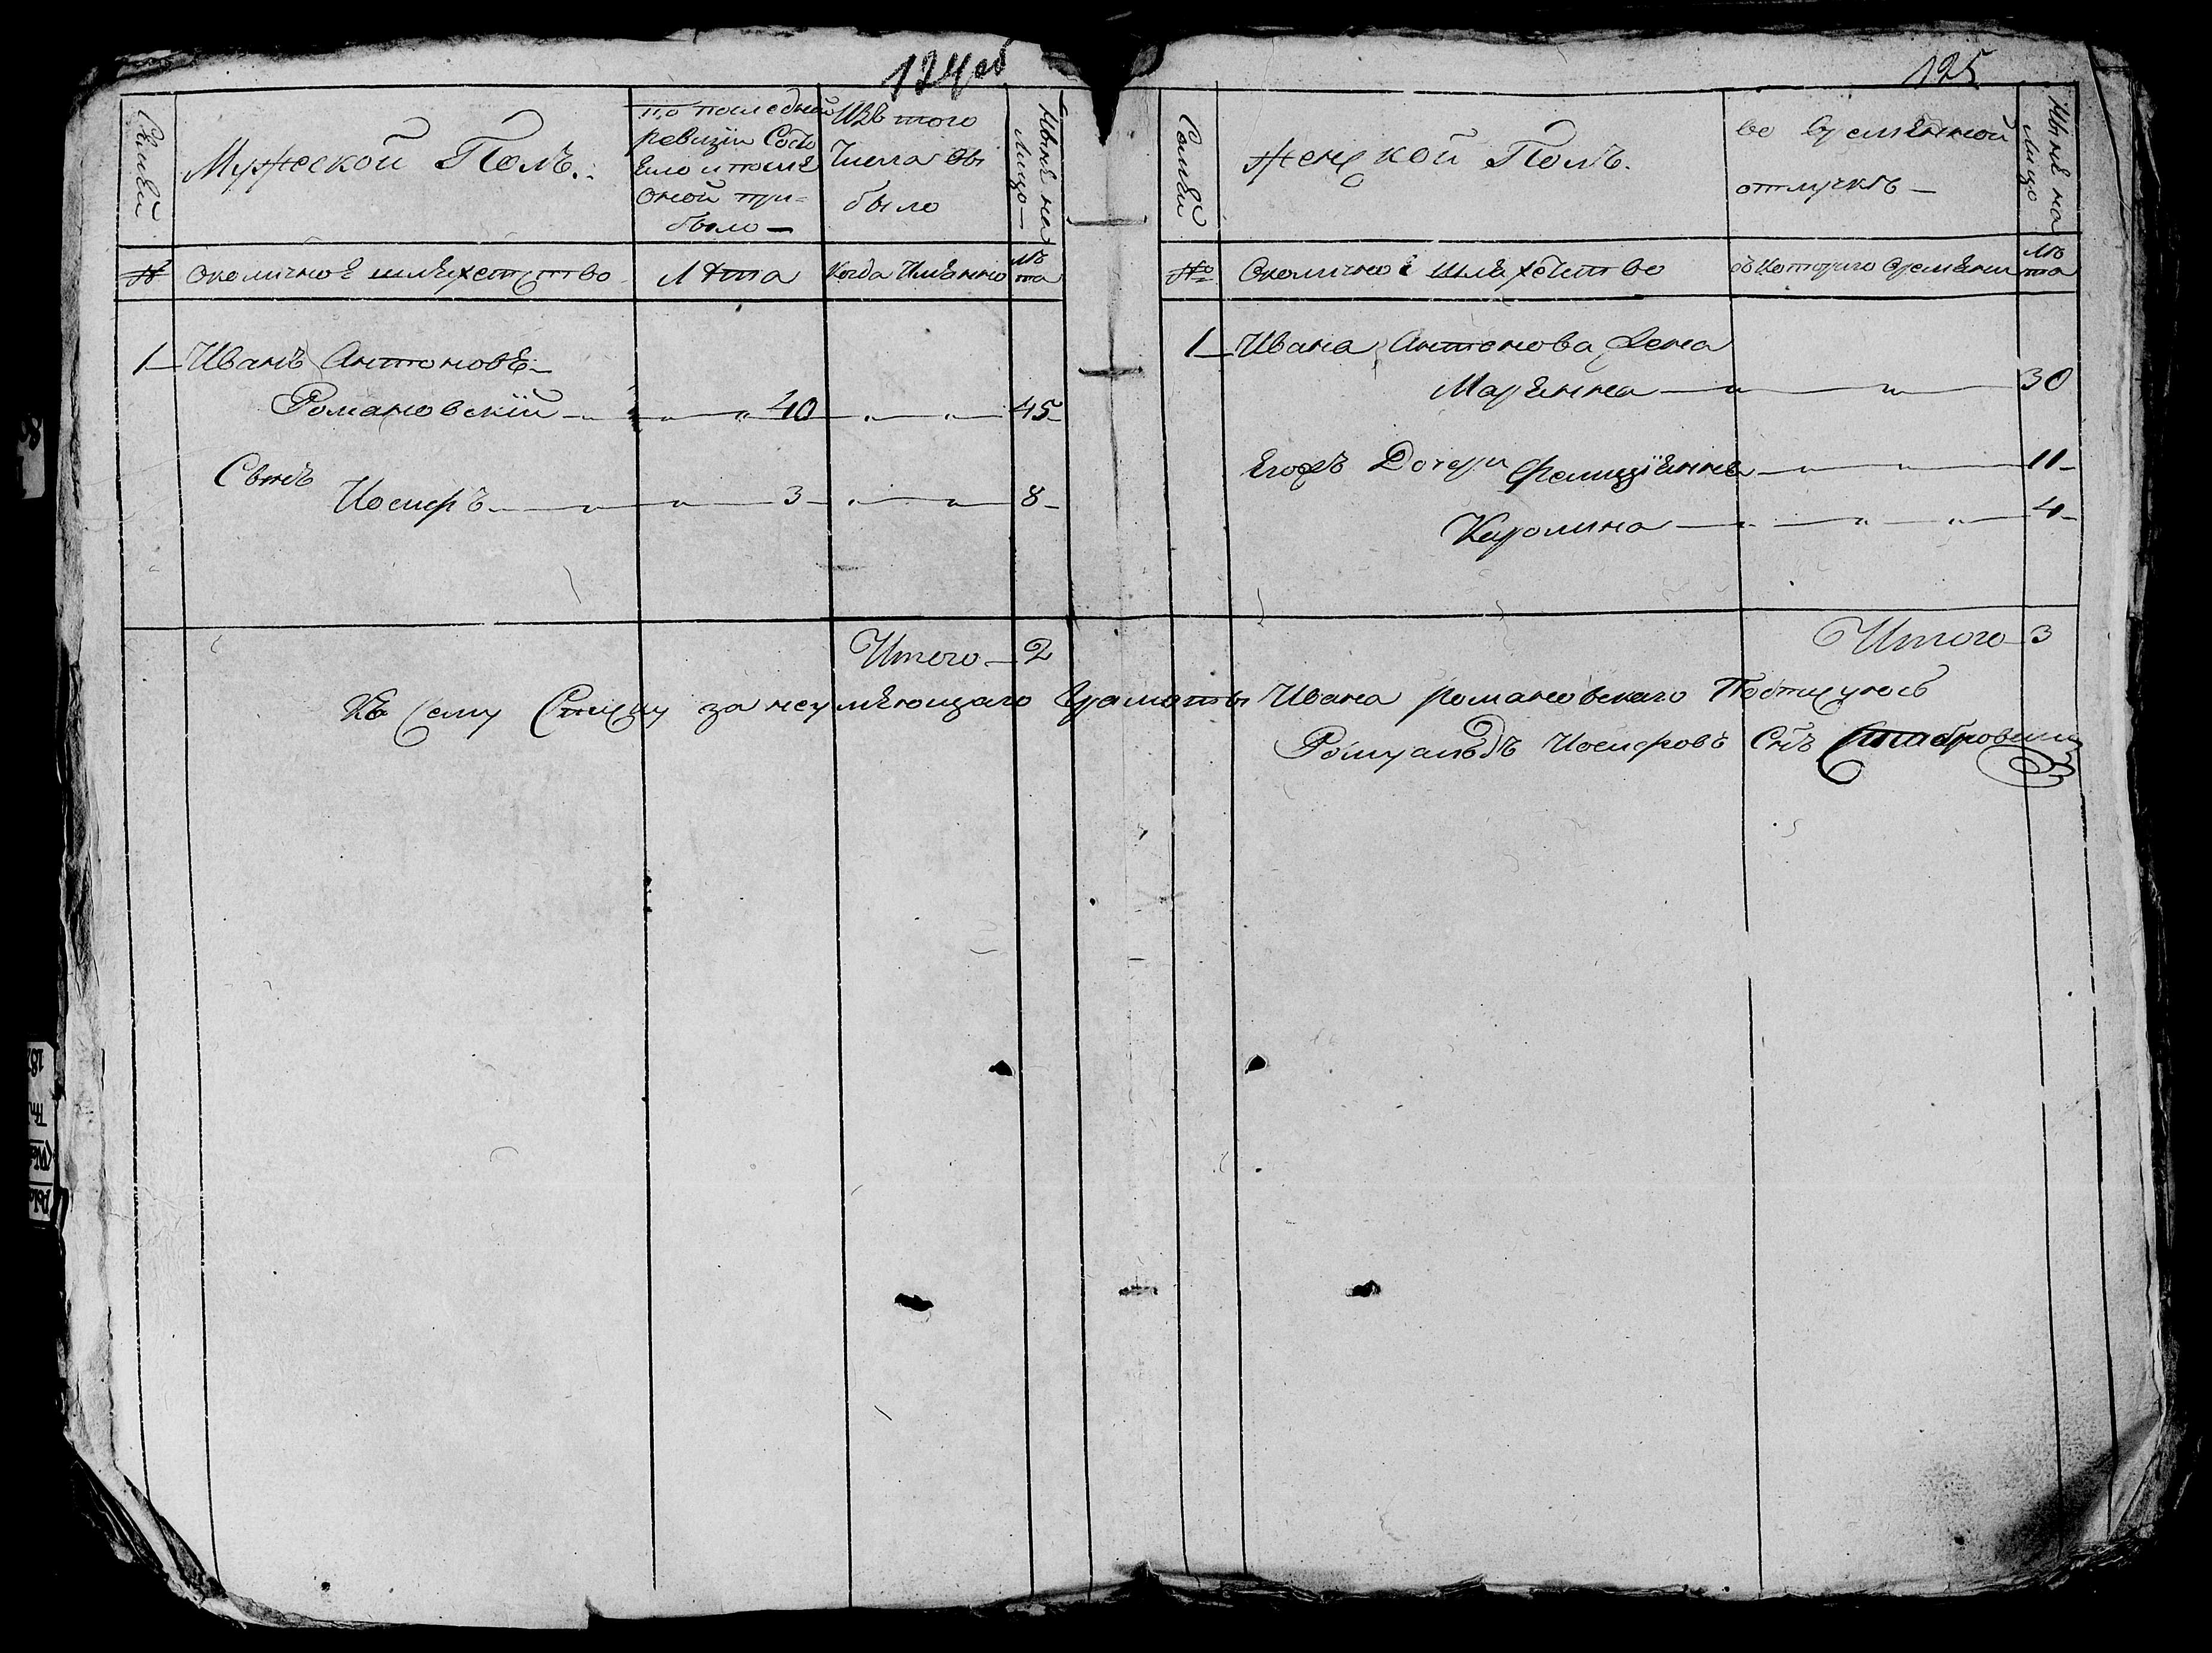 124об
Семей
Мужеской Полъ.
по последней
ревизіи Состо
яло и после
оной при=
было —
Изъ того
Числа вы
было
Ныне на
Лицо —
№
околичное шляхетство
Лѣта
Когда Имянно
Лѣ
та
1 — Иванъ Антоновъ
Романовскій — 40 — 45
Сынъ
Иосифъ — 3 — 8
Итого — 2
125
Семей
Женской Полъ.
во временной
отлучкѣ —
Ныне на
Лицо
№
Околичное шляхетство
съ Котораго времени
Лѣ
та
1 — Ивана Антонова Жена
Марянна — 30
Егожъ Дочери Фелиціянна — 11
Каролина — 4
Итого 3
Къ Сему Списку за неумеющаго Грамоты Ивана Романовскаго Подписуюсь
Ромуальдъ Иосифовъ Снъ